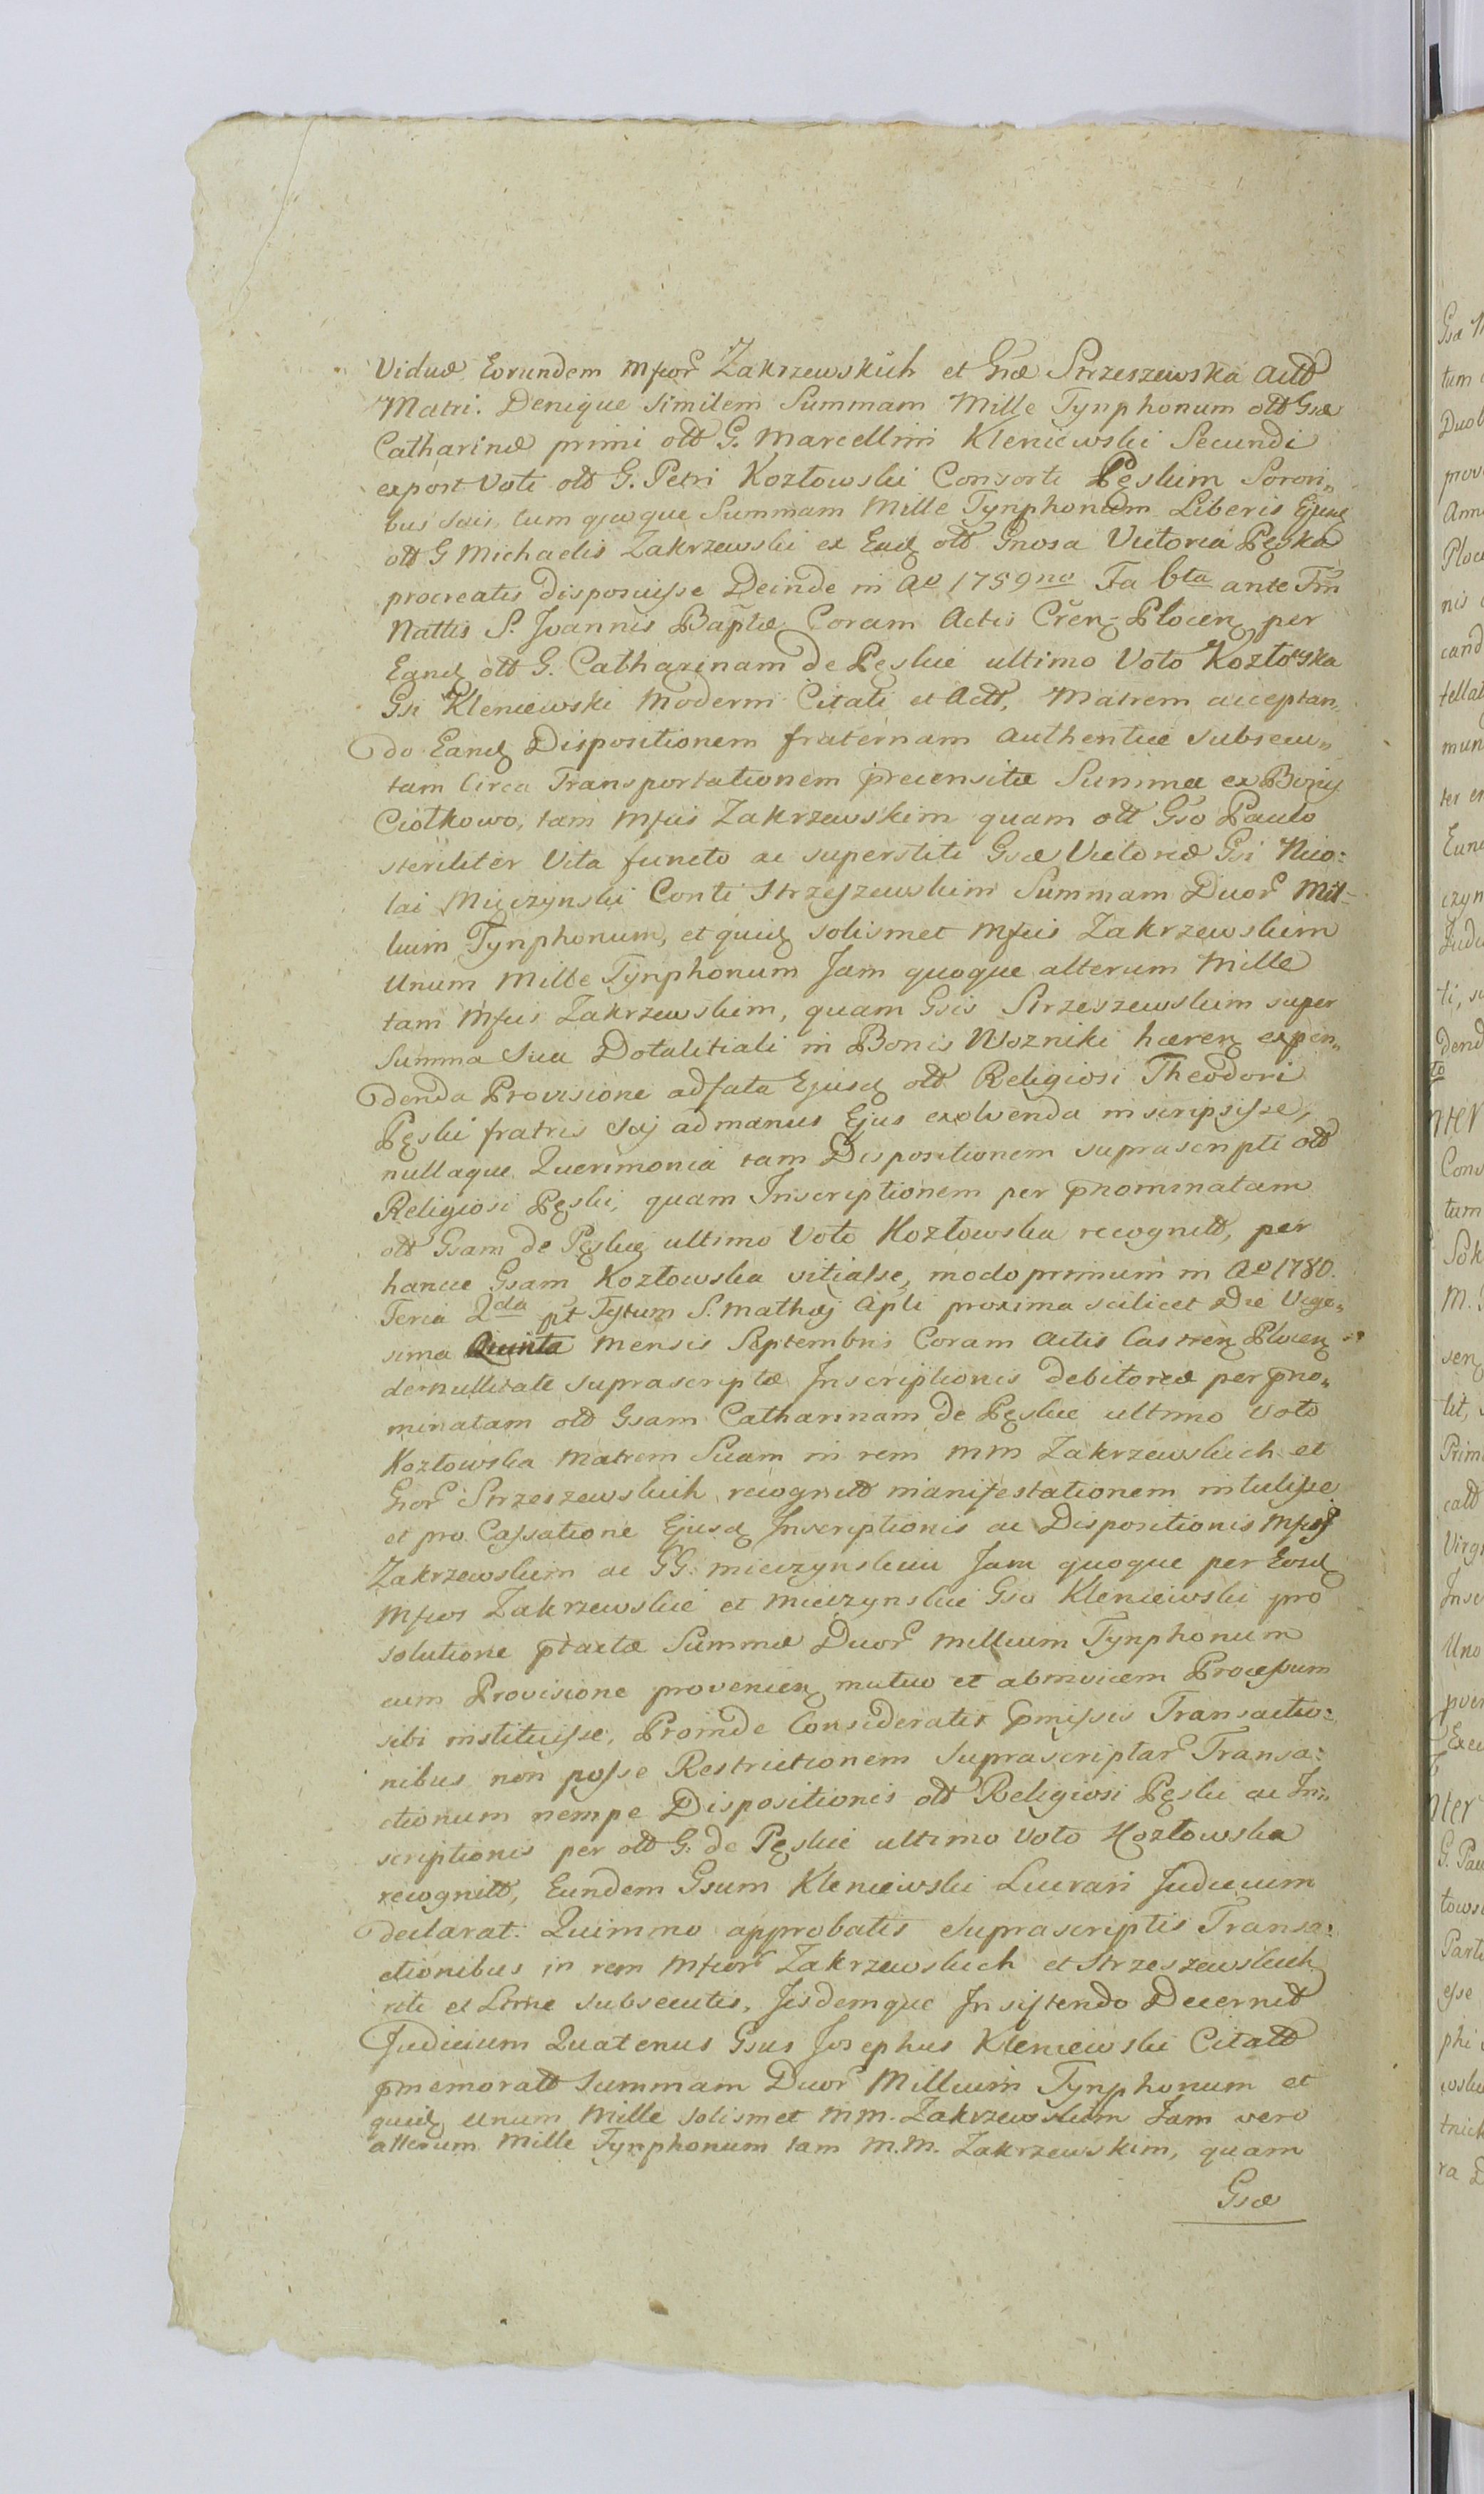 Viduæ Eorundem Mfcor Zakrzewskich et Gnæ Strzeszewska actt
Matri. Denique Similem Summam Mille Tynphonum ott Gsæ
Catharinæ primi ott G. Marcellini Kleniewski Secundi
expost Voti ott G. Petri Kozłowski Consorti Pęskim Sorori„
bus suis, tum quoque Summam Mille Tynphonum Liberis Ejusd
ott G Michaelis Zakrzewski ex Ead ott Gnosa Victoria Pęska
procreatis disposuisse Deinde in Ao 1759no Fa 6ta ante Fm
Nattis S. Joannis Baptæ Coram Actis Cren Plocen per
Eand ott G. Catharinam de Pęskie ultimo Voto Kozłowska
Gsi Kleniewski Moderni Citati et Actt, Matrem acceptan„
do Eand Dispositionem fraternam authentice subsecu„
tam Circa Transportationem precensitæ Summæ ex Bonis
Ciołkowo, tam Mfcis Zakrzewskim quam ott Gso Paulo
steriliter Vita functo ac superstiti Gsæ Victoriæ Gsi Nico:
lai Mieczynski Conti Strzeszewskim Summam Duor Mil-
lium Tynphonum, et quid solismet Mfcis Zakrzewskim
Unum Mille Tynphonum Jam quoque alterum Mille
tam Mfcis Zakrzewskim, quam Gsis Strzeszewskim super
Summa sua Dotalitiali in Bonis Wozniki hæren expen„
denda Provisione ad fata Ejusd ott Religiosi Theodori
Pęski fratris sui ad manus Ejus exolvenda inscripsisse,
nullaque Querimonia tam Dispositionem suprascripti ott
Religiosi Pęski, quam Inscriptionem per pnominatam
ott Gsam de Pęskie ultimo Voto Kozłowska recognitt, per
hancce Gsam Kozłowska vitiasse, modo primum in Ao 1780.
Feria 2da pt Festum S. Mathæi Apli proxima scilicet Die Vige„
sima Quinta Mensis Septembris Coram Actis Castren Plocen
de nullitate suprascriptæ Inscriptionis debitoreæ per pno„
minatam ott Gsam Catharinam de Pęskie ultimo Voto
Kozłowska Matrem Suam in rem MM Zakrzewskich et
Gsor Strzeszewskich recognitt manifestationem intulisse
et pro Cassatione Ejusd Inscriptionis ac Dispositionis Mfcis
Zakrzewskim ac GG. Mieczynskim Jam quoque per Eosd
Mfcos Zakrzewskie et Mieczynskie Gso Kleniewski pro
solutione ptactæ Summæ Duor Millium Tynphonum
cum Provisione provenien mutuo et abinvicem Processum
sibi instituisse, Proinde Consideratis pmissis Transactio:
nibus non posse Restrictionem Suprascriptar Transa:
ctionum nempe Dispositionis ott Religiosi Pęski ac In„
scriptionis per ott G. de Pęskie ultimo Voto Kozłowska
recognitt, Eundem Gsum Kleniewski Lucrari Judicium
declarat. Quimmo approbatis Suprascriptis Transa:
ctionibus in rem Mfcor Zakrzewskich et Strzeszewskich
rite et Ltme subsecutis, Jisdemque Insistendo Decernit
Judicium Quatenus Gsus Josephus Kleniewski Citatt
pmemoratt Summam Duor Millium Tynphonum et
quid unum Mille solismet MM. Zakrzewskim Jam vero
alterum Mille Tynphonum tam M.M. Zakrzewskim, quam
Gsæ